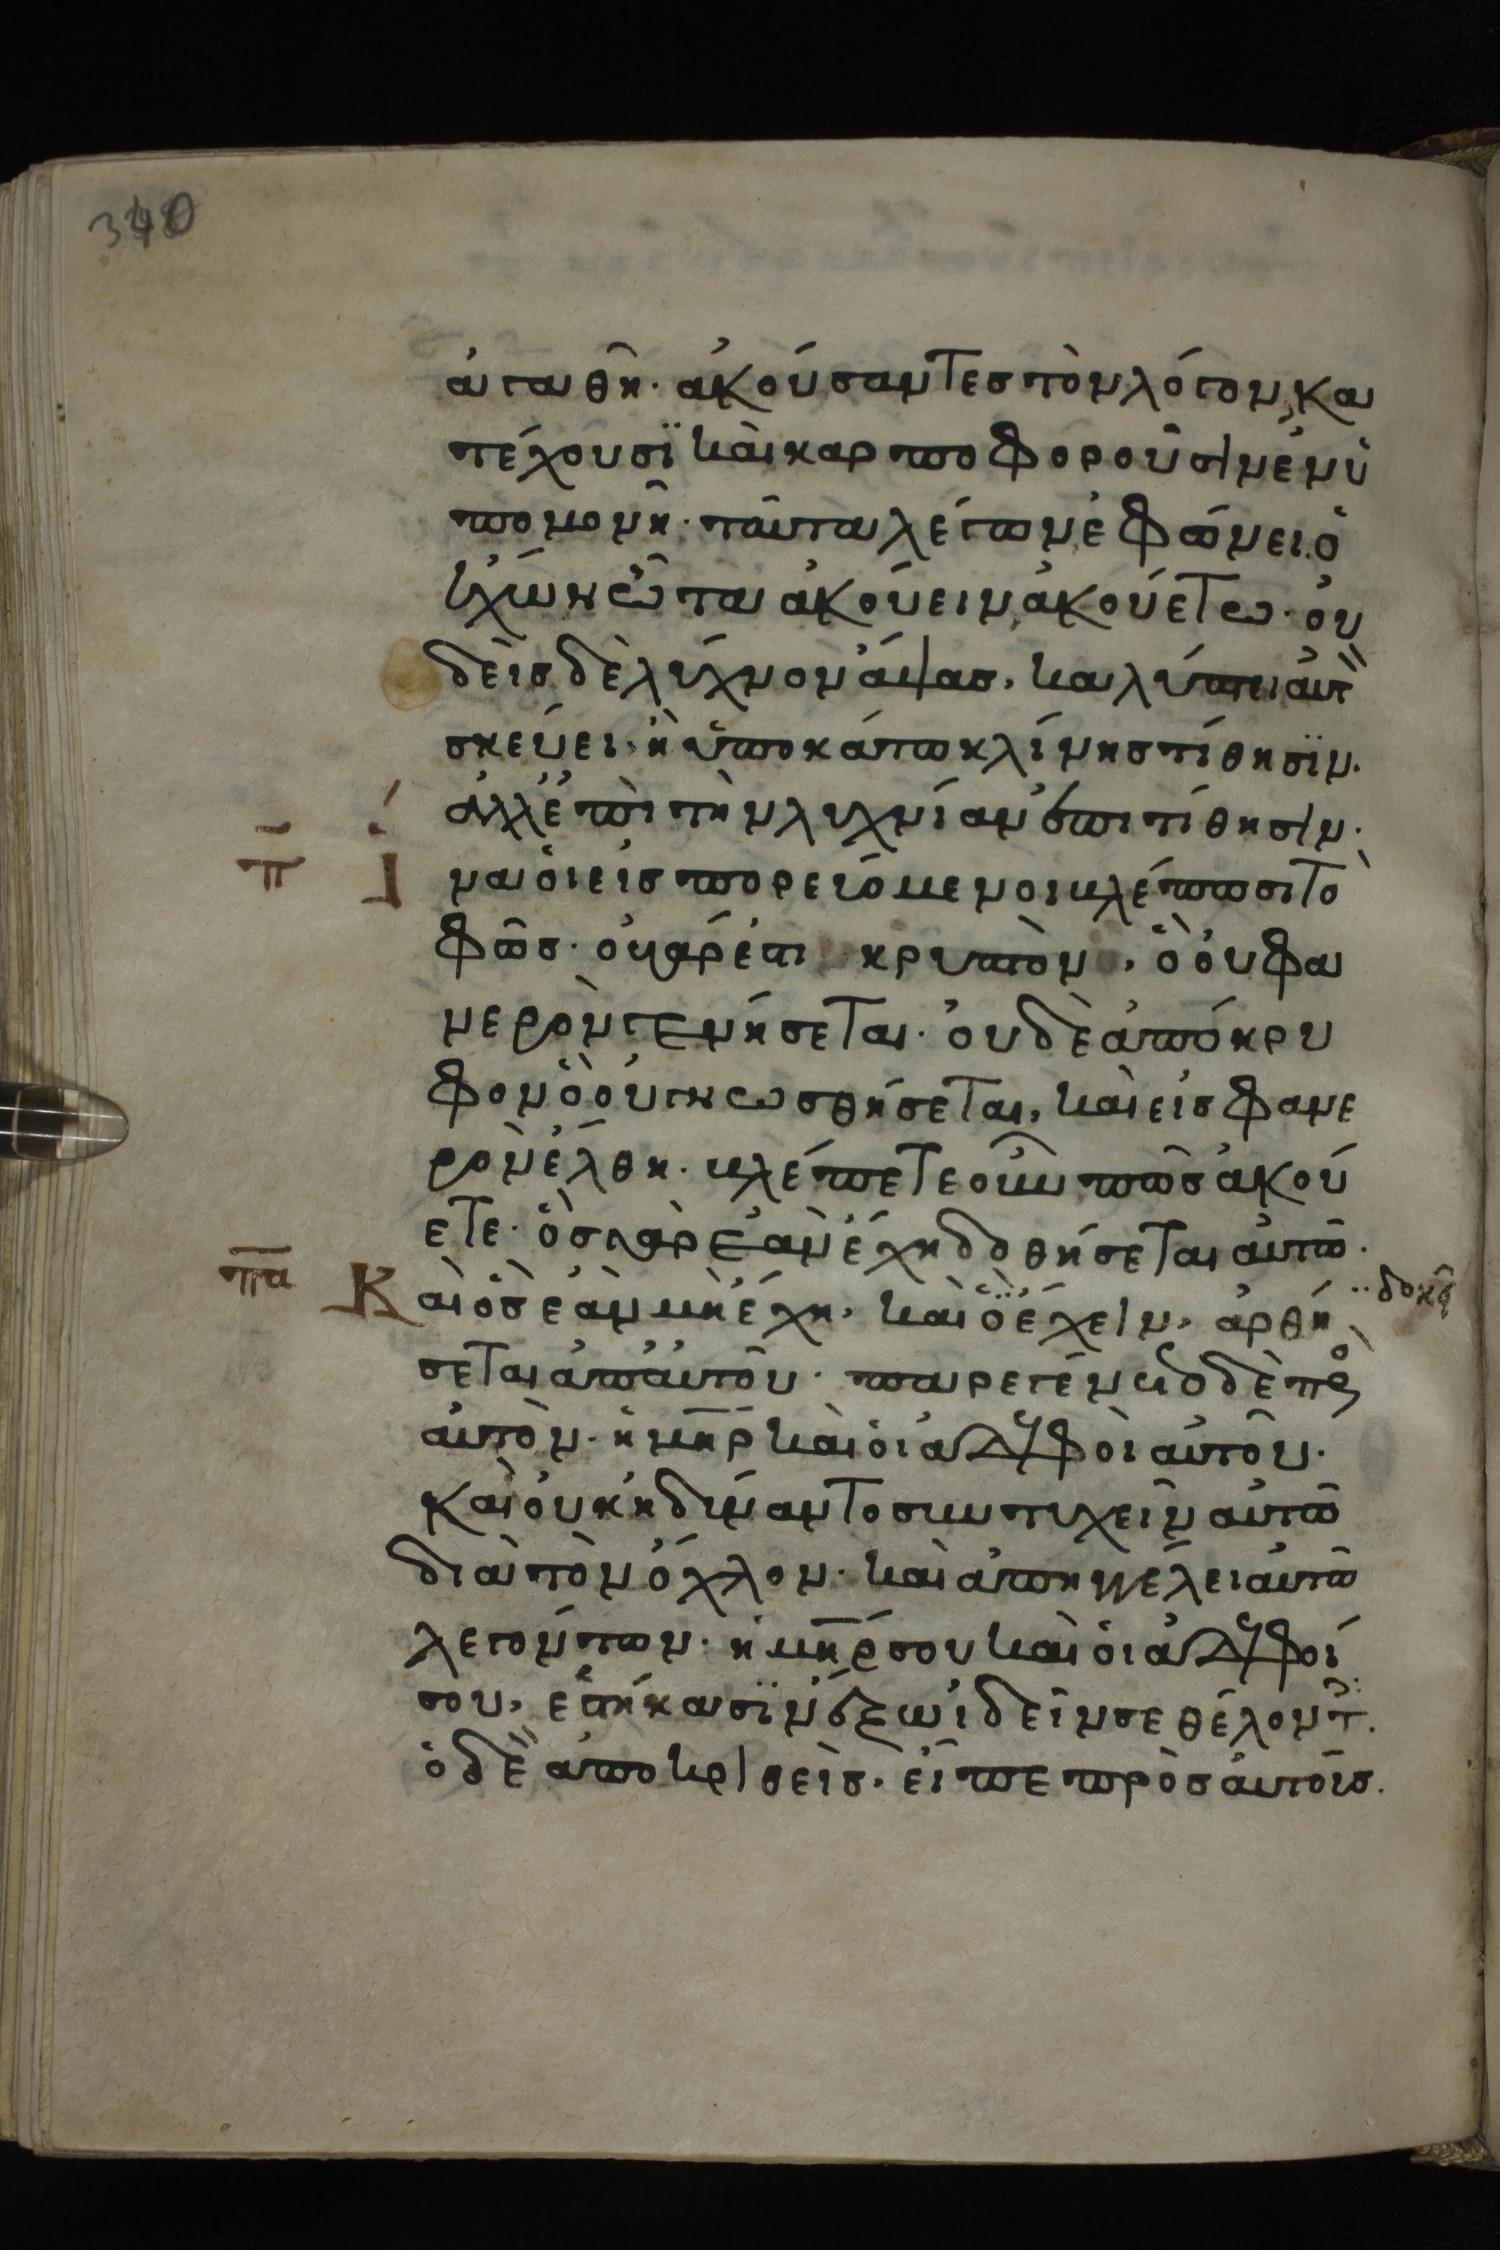 340
ἀγαθῆ· ἀκούσαντες τὸν λόγον, κα
τέχουσϊ καὶ καρποφοροῦσιν ἐν ὑ
πομονῆ· ταῦτα λέγων ἐφώνει· ὁ
ἔχων ὦτα ἀκούειν, ἀκουέτω· οὐ
δεὶς δὲ λύχνον ἅψας, καλύπτει αὐτ
σκεύει· ἢ ὑποκάτω κλίνης τίθησϊν·
ἀλλ' ἐπὶ τὴν λυχνίαν ἐπιτίθησιν·
π̄ ἵ
να οἱ εἰσπορευόμενοι βλέπωσι τὸ
φῶς· οὐ γάρ ἐστι κρυπτὸν, ὃ οὐ φα
νερὸν γενήσεται· οὐδὲ ἀπόκρυ
φον ὃ οὐ γνωσθήσεται, καὶ εἰς φανε
ρὸν ἔλθη· βλέπετε οὖν πῶς ἀκού
ετε· ὃς γὰρ ἐὰν ἔχη δοθήσεται αὐτῶ·
π̄α Καὶ ὃς ἐὰν μὴ ἔχη, καὶ ὃ ἔχειν, ἀρθή
δοκεῖ
σεται ἀπ' αὐτοῦ· παρεγένοντο δὲ πρὸς
αὐτὸν· ἡ μη̄ρ καὶ οἱ ἀδελφοὶ αὐτοῦ·
καὶ οὐκ ἠδύναντο συντυχεῖν αὐτῶ
διὰ τὸν ὄχλον· καὶ ἀπηγγέλει αὐτῶ
λεγόντων· ἡ μη̄ρ σου καὶ οἱ ἀδελφοί
σου, ἑστήκασϊν ἔξω ἰδεῖν σε θέλοντ·
ὁ δὲ ἀποκριθεὶς· εἶπε πρὸς αὐτοῖς.